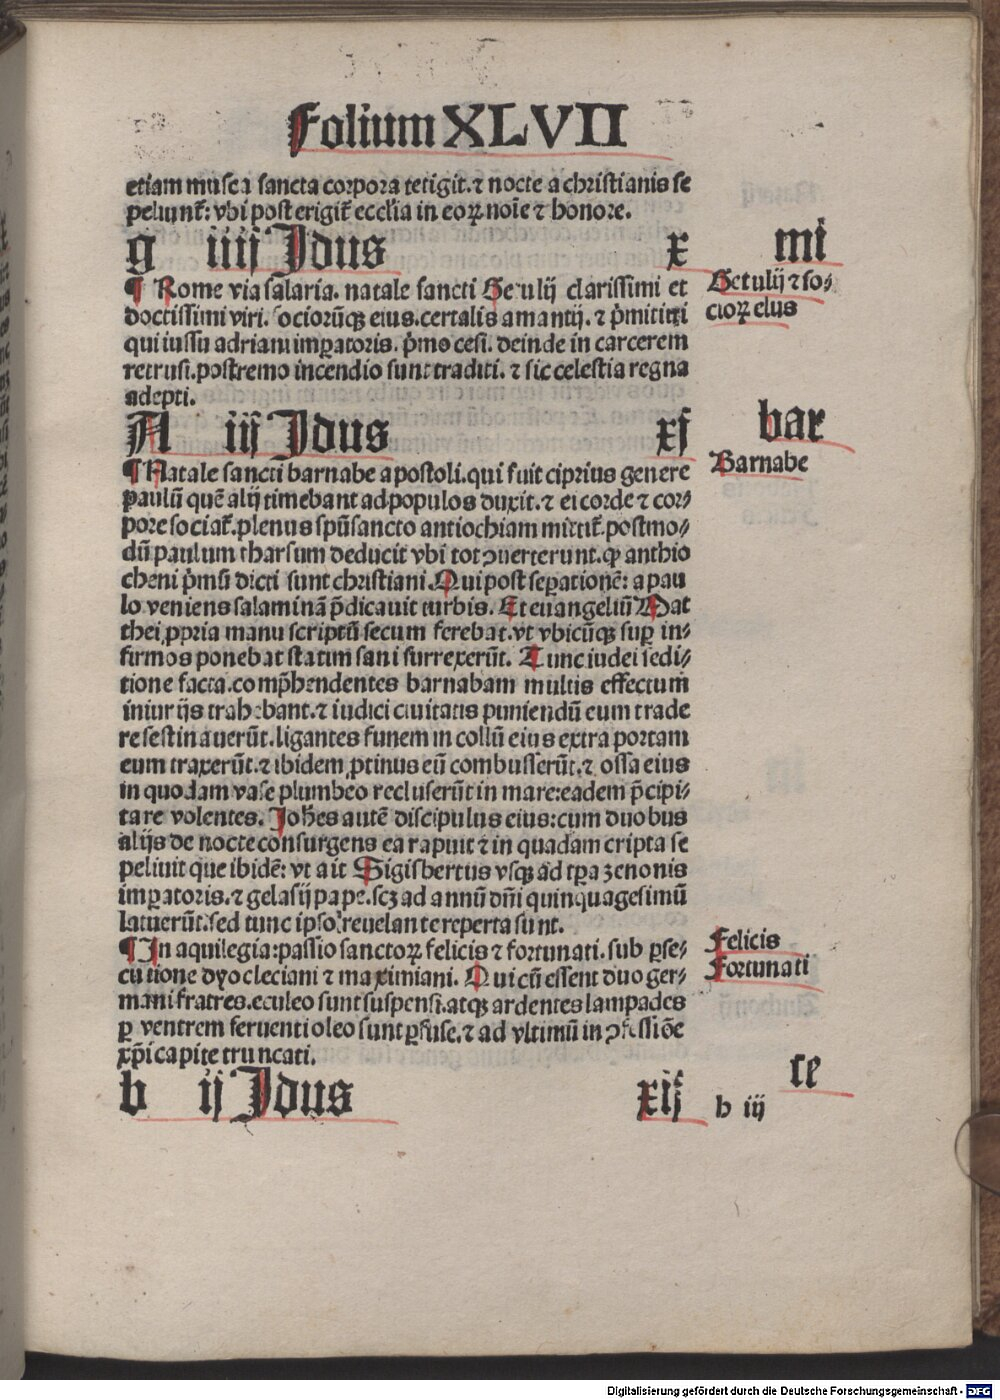 Folium XLVII
etiam musca sancta corpora tetigit. ⁊ nocte a christianis se
peliunt᷑: vbi post erigit᷑ eccl̄ia in eoꝝ noīe ⁊ honore.
g iiij Idus x mi
¶ Rome via salaria. natale sancti Getulij clarissimi et
Getulij ⁊ so⸗
doctissimi viri. sociorūqꝫ eius. certalis amantij. ⁊ p̄mitiui
cioꝝ eius
qui iussu adriani imꝑatoris. p̄mo cesi. deinde in carcerem
retrusi. postremo incendio sunt traditi. ⁊ sic celestia regna
adepti.
A iij Idus xj bar
¶ Natale sancti barnabe apostoli. qui fuit ciprius genere
Barnabe
paulū quē alij timebant ad populos duxit. ⁊ ei corde ⁊ cor⸗
pore sociat᷑. plenus spūsancto antiochiam mittit᷑. postmo⸗
dū paulum tharsum deducit vbi tot ꝯuerterunt. ꝙ anthio
cheni p̄mū dicti sunt christiani. Qui post seꝑationē: a pau
lo veniens salaminā p̄dicauit turbis. Et euangeliū Mat
thei ꝓpria manu scriptū secum ferebat. vt vbicūqꝫ suꝑ in⸗
firmos ponebat statim sani surrexerūt. Tunc iudei sedi⸗
tione facta. comp̄hendentes barnabam multis effectum
iniurijs trahebant. ⁊ iudici ciuitatis puniendū eum trade
re festinauerūt. ligantes funem in collū eius extra portam
eum traxerūt. ⁊ ibidem ꝓtinus eū combusserūt. ⁊ ossa eius
in quodam vase plumbeo recluserūt in mare: eadem p̄cipi⸗
tare volentes. Joh̄es autē discipulus eius: cum duobus
alijs de nocte consurgens ea rapuit ⁊ in quadam cripta se
peliuit que ibidē: vt ait Sigisbertus vsqꝫ ad tꝑa zenonis
imꝑatoris. ⁊ gelasij pape. scꝫ ad annū dn̄i quinquagesimū
latuerūt. sed tunc ipso reuelante reperta sunt.
¶ In aquilegia: passio sanctoꝝ felicis ⁊ fortunati. sub ꝑse⸗
Felicis
cutione dyocleciani ⁊ maximiani. Qui cū essent duo ger⸗
Fortunati
mani fratres. eculeo sunt suspensi. atqꝫ ardentes lampades
ꝑ ventrem feruenti oleo sunt ꝑfuse. ⁊ ad vltimū in ꝯfessiōe
xp̄i capite truncati.
b ij Idus xij ce
h iij
Digitalisierung gefördert durch die Deutsche Forschungsgemeinschaft - DFG